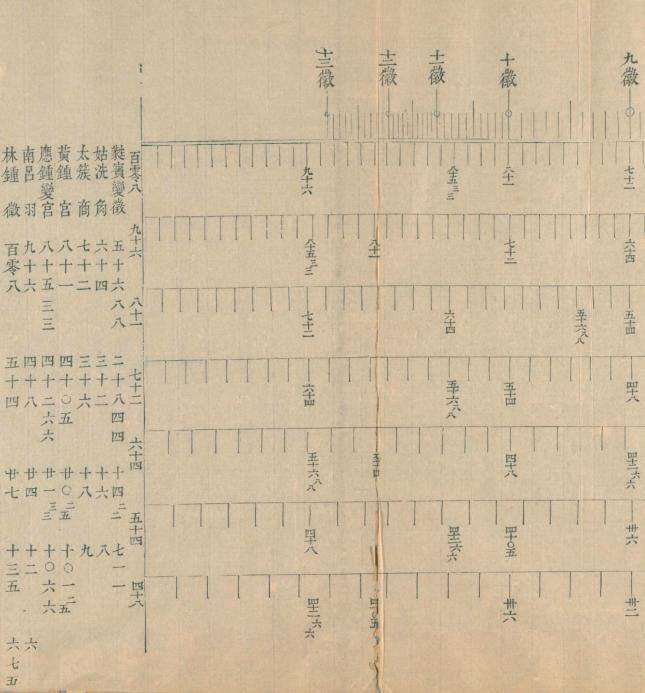 九徽
十徽
十一徽
十二徽
十三徽
七十二
八十一
八十五三三
九十六
百零八
六十四
七十二
八十一
八十五三三
九十六
五十四
五十六八八
六十四
七十二
八十一
四十八
五十四
五十六八八
六十四
七十二
四十二六六
四十八
五十四
五十六八八
六十四
卅六
四十〇五
四十二六六
四十八
五十四
卅二
卅六
四十〇五
四十二六六
四十八
蕤賓變徵 五十六八八 二十八四四 十四二二 七一一
姑洗 角 六十四 三十二 十六 八
太簇 商 七十二 三十六 十八 九
黃鍾 宮 八十一 四十〇五 廿〇二五 十〇一二五
應鍾變宮 八十五三三 四十二六六 廿一三三 十〇六六
南呂 羽 九十六 四十八 廿四 十二 六
林鍾 徵 百零八 五十四 廿七 十三五 六七五